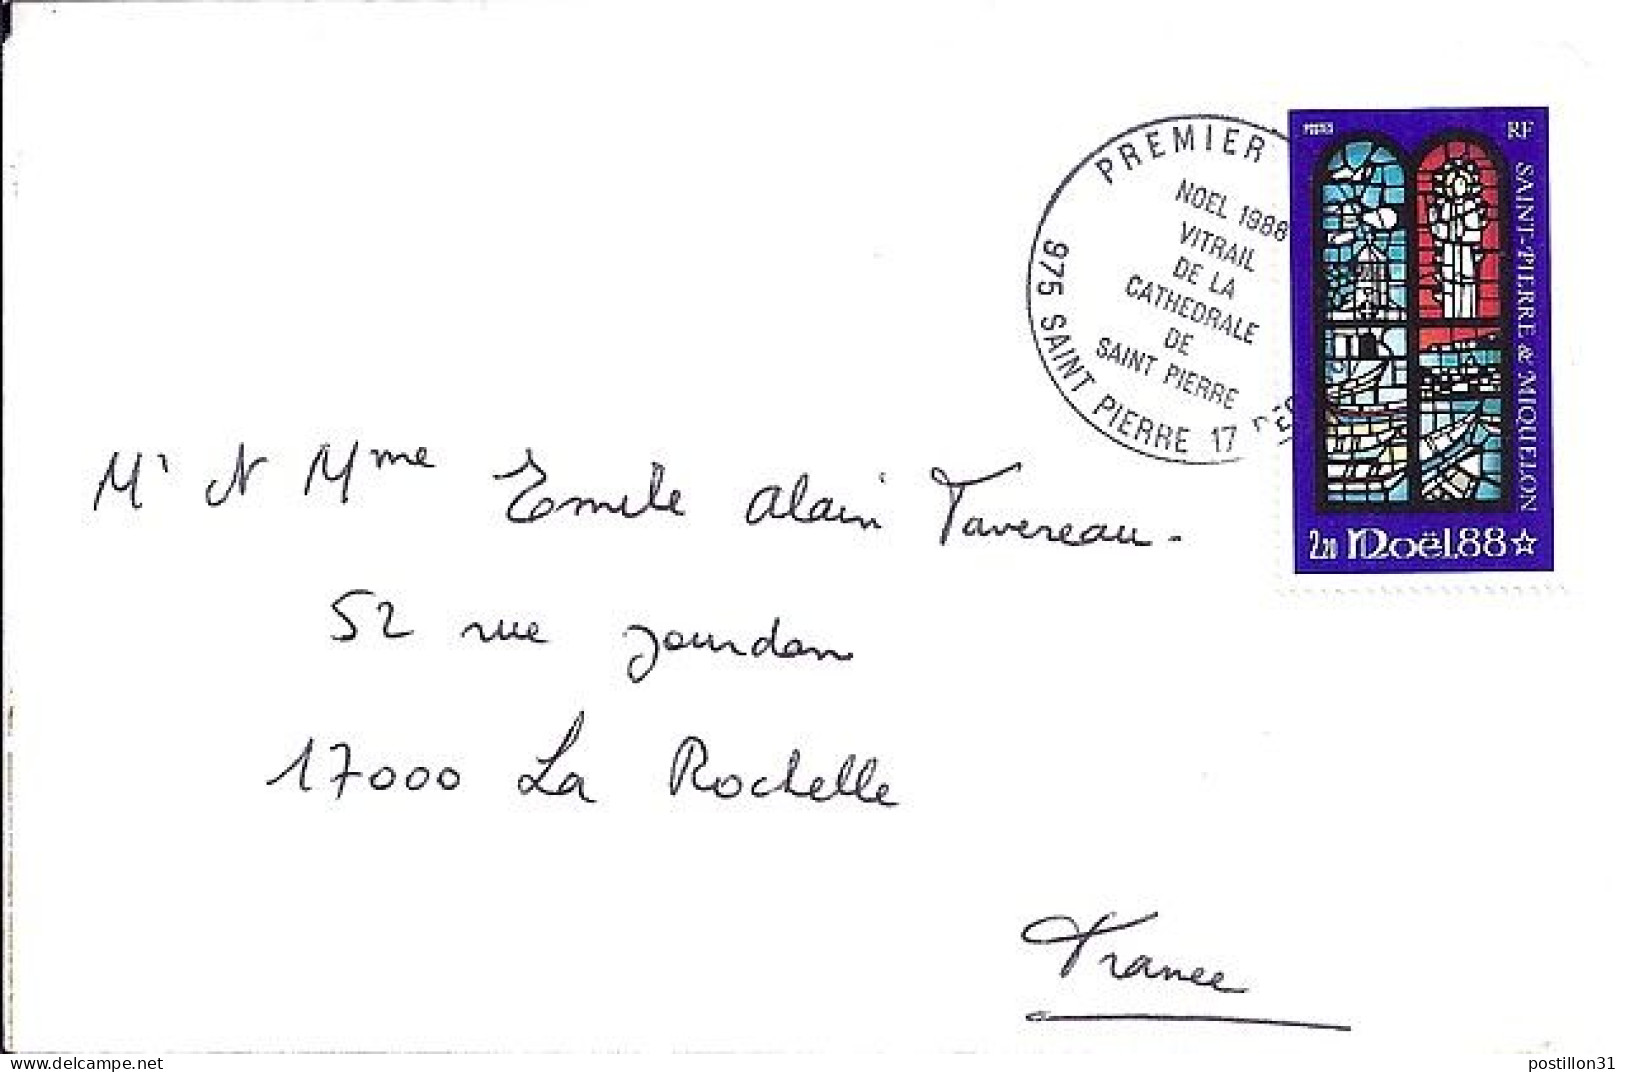 PREMIER
NOEL 1988
VITRAIL
DE LA
CATHEDRALE
DE
SAINT PIERRE
975 SAINT PIERRE 17 DEC
POSTES
RF
SAINT-PIERRE & MIQUELON
2,20 Noël.88
Mr Mme Emile Alain Tavereau.
52 rue Jourdan
17000 La Rochelle
France
www.delcampe.net
postillon31